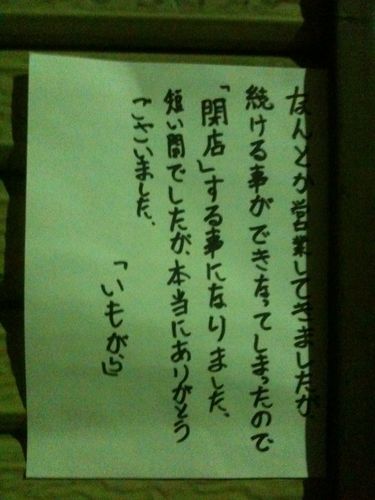 なんとか営業してきましたが、
続ける事ができなってしまったので
「閉店」する事になりました、
短い間でしたが、本当にありがとう
ございました、
「いもがら」